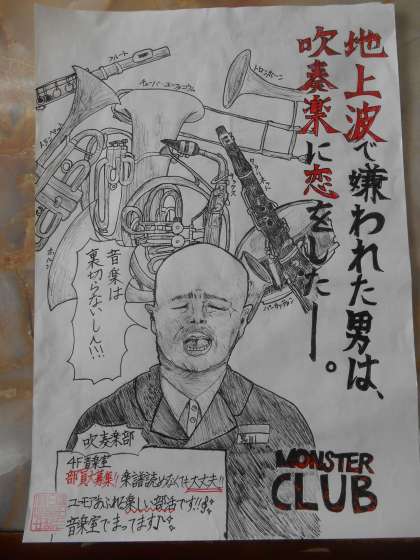 地上波で嫌われた男は、
吹奏楽に恋をしたー。
フルート
トロンボーン
チューバ・ユーフォニウム
トランペット
サックス
ホルン
パーカッション
音楽は
裏切らないしん!!!
吹奏楽部
4F音楽室
部員大募集!!楽譜読めなくても大丈夫!!
ユーモアあふれる楽しい部活です!!
音楽室でまってます♪
MONSTER
CLUB